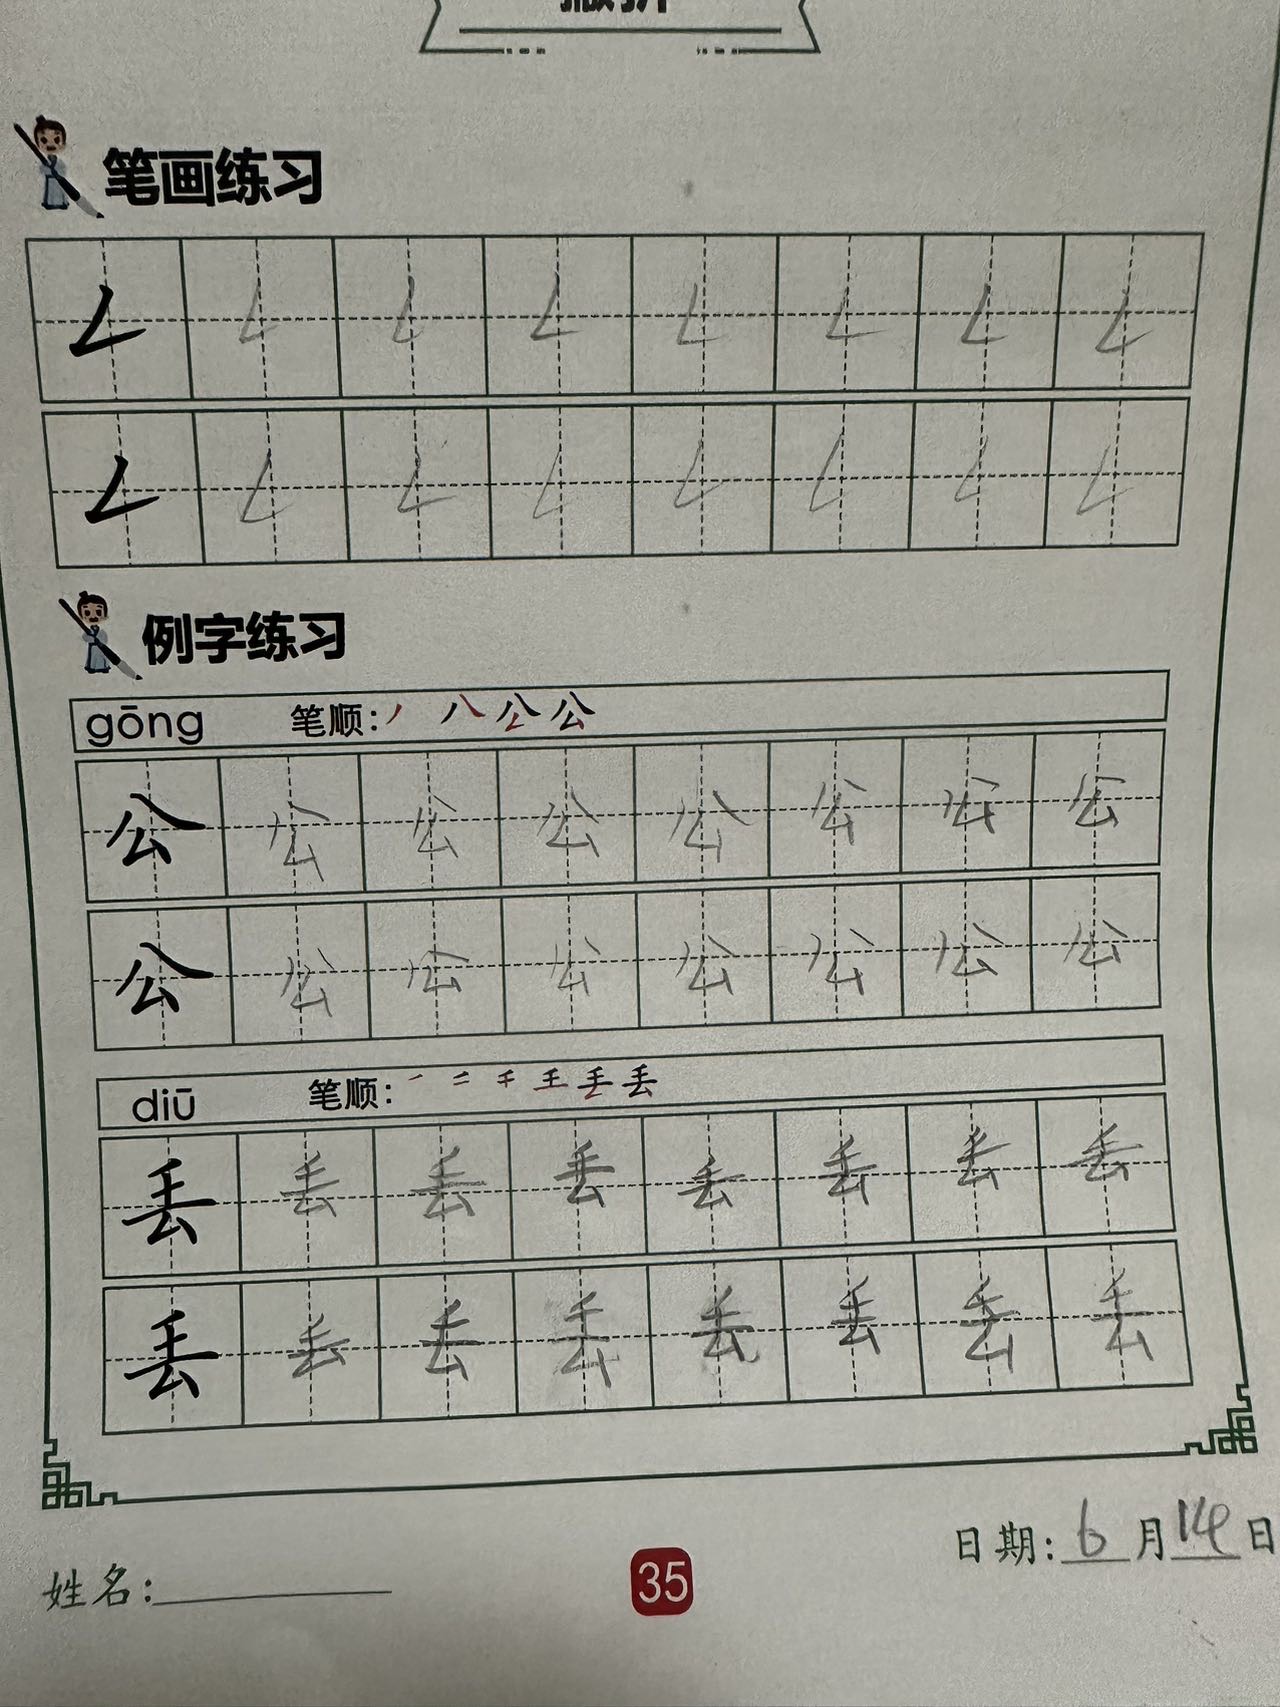 撇折
笔画练习
𠃋 𠃋 𠃋 𠃋 𠃋 𠃋 𠃋 𠃋
𠃋 𠃋 𠃋 𠃋 𠃋 𠃋 𠃋 𠃋
例字练习
gōng 笔顺: 公
公 公 公 公 公 公 公 公
公 公 公 公 公 公 公 公
diū 笔顺: 丢
丢 丢 丢 丢 丢 丢 丢 丢
丢 丢 丢 丢 丢 丢 丢 丢
日期: 6 月 14 日
姓名:
35